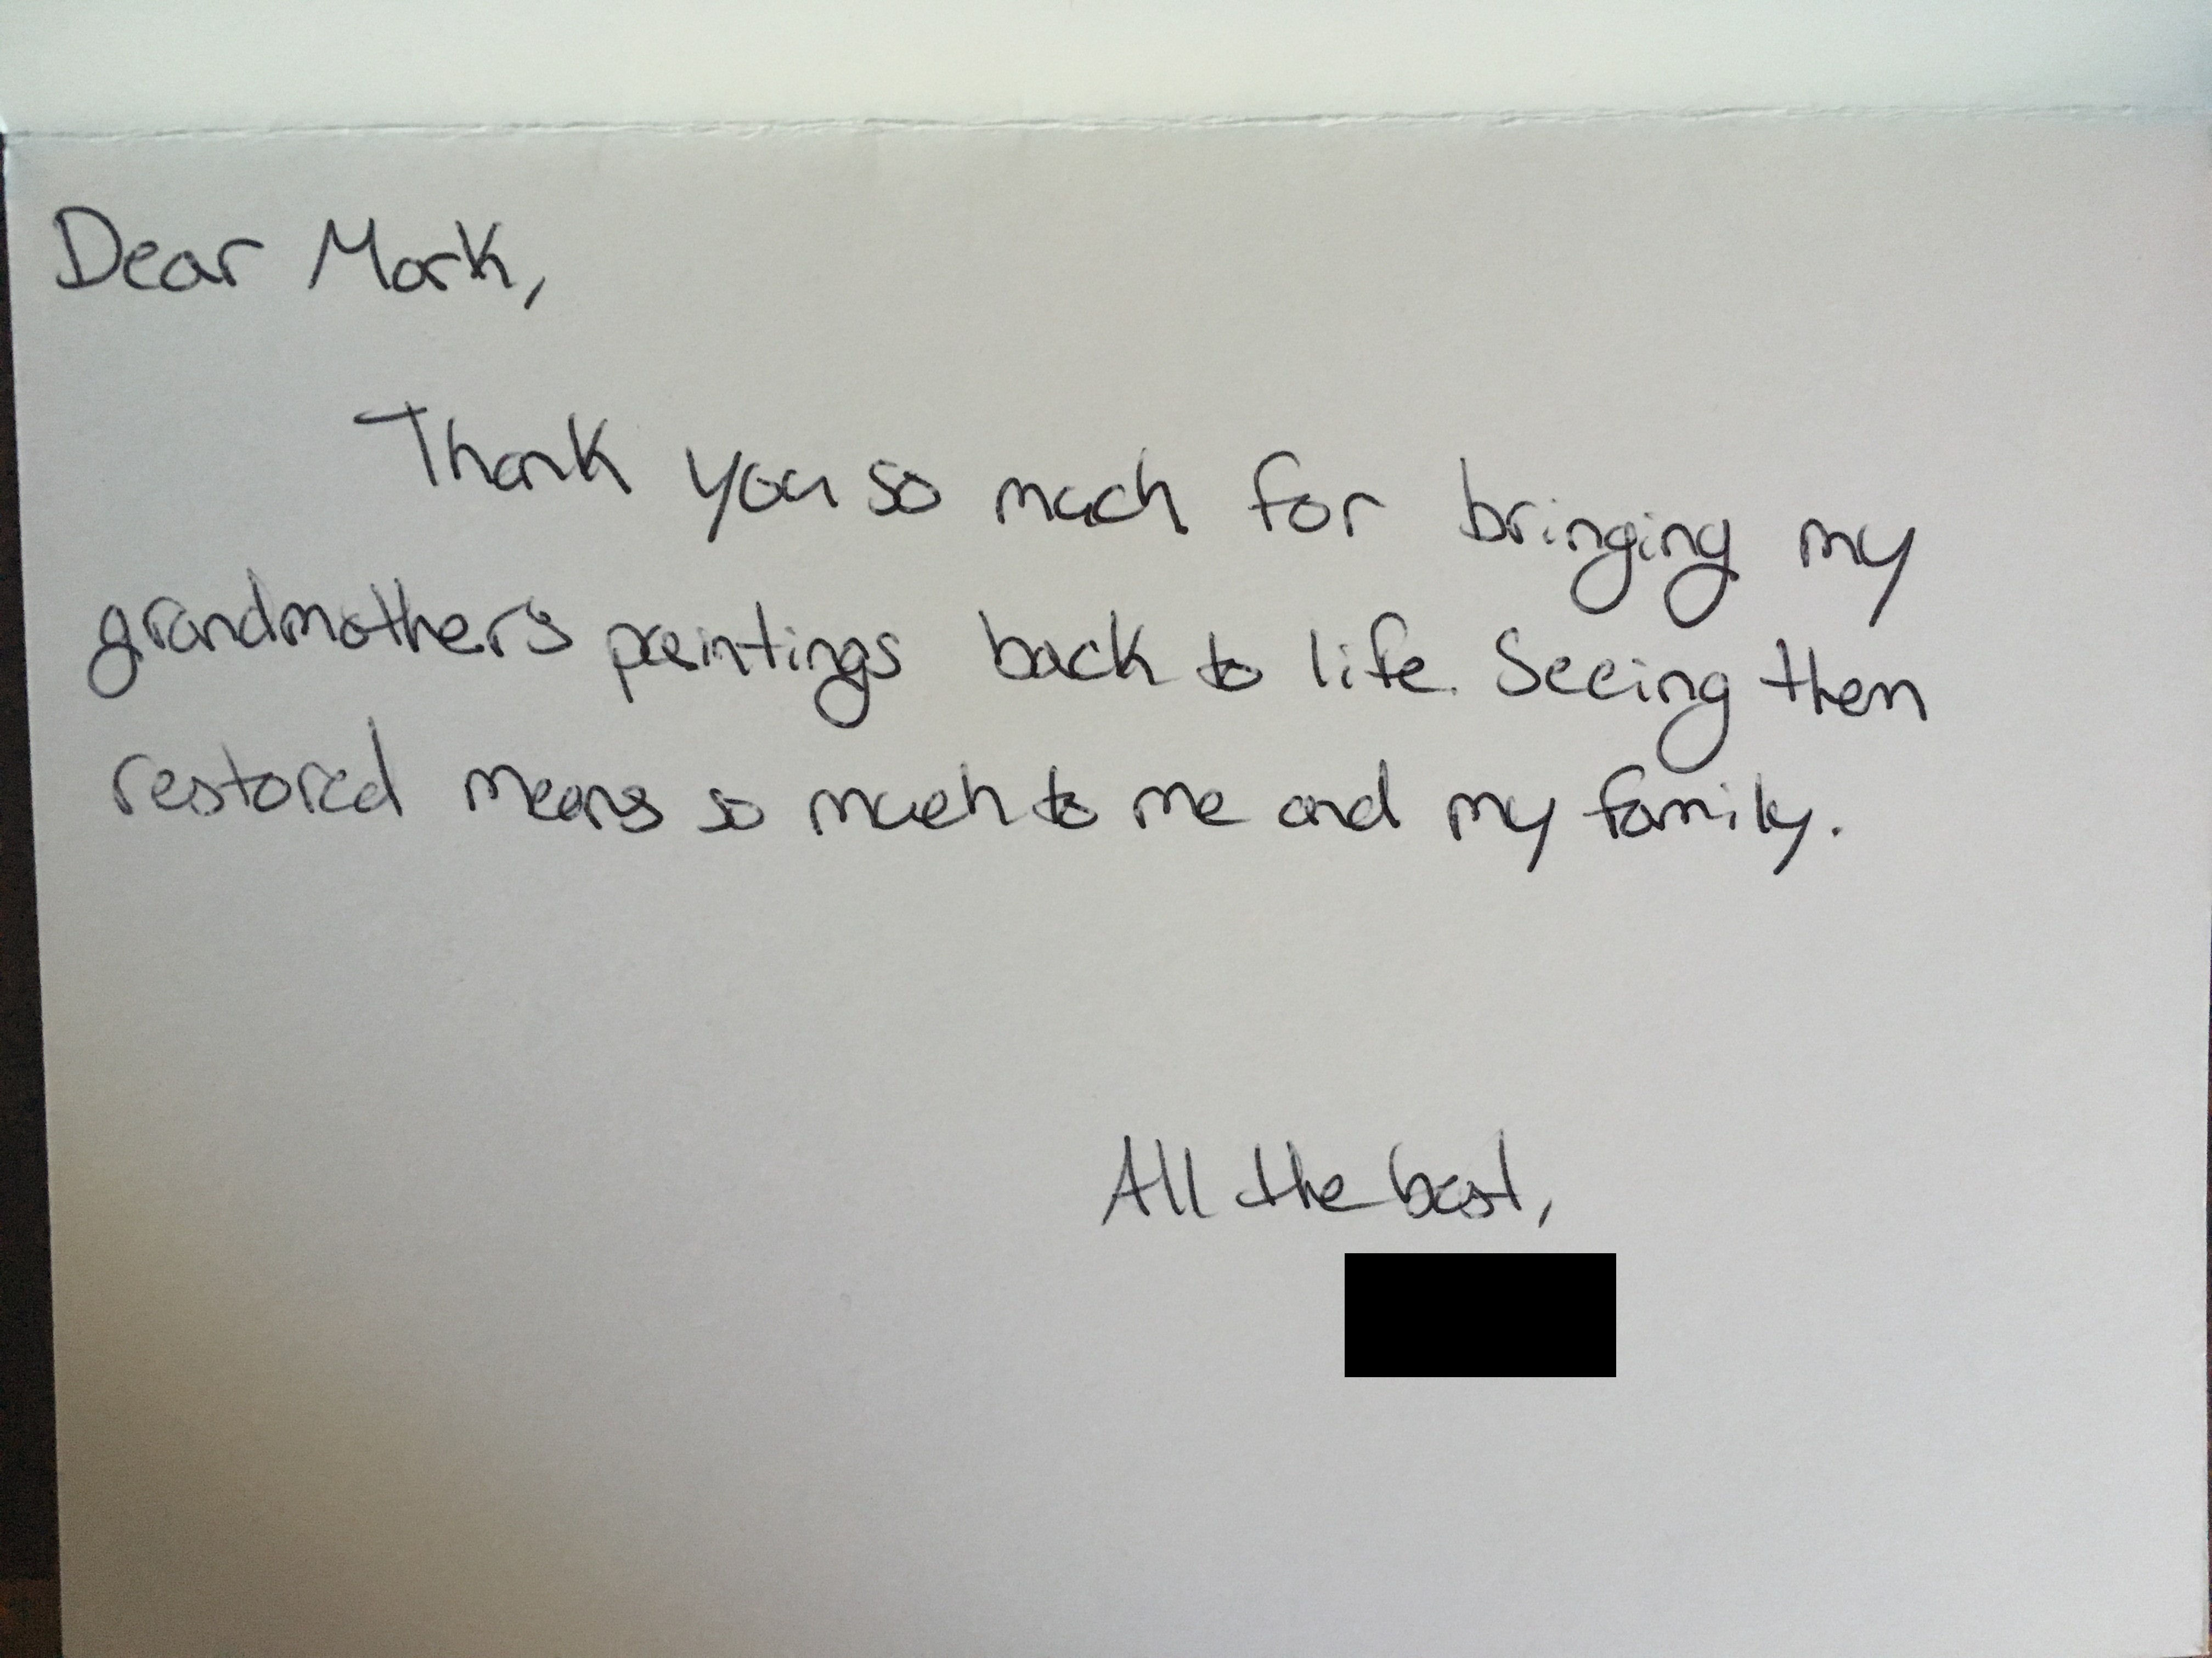 Dear Mark,
Thank you so much for bringing my
grandmother's paintings back to life. Seeing them
restored means so much to me and my family.
All the best,